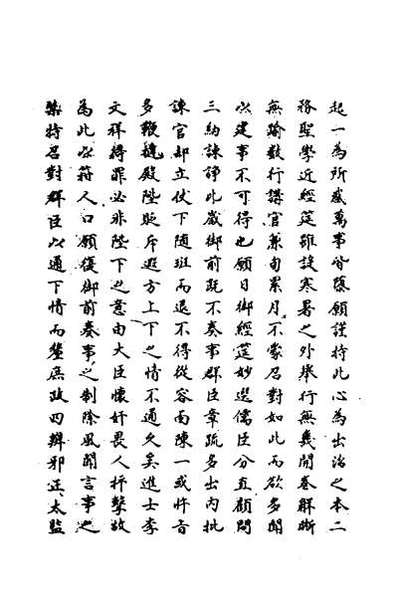 起一為所惑萬事皆隳願謹持此心為出治之本二
務聖學近經筵雖設寒暑之外舉行無幾開卷解晰
無踰數行講官兼旬累月不蒙召對如此而欲多聞
以建事不可得也願日御經筵妙選儒臣分直顧問
三納諫諍此歲御前既不奏事群臣章疏多出內批
諫官却立仗下隨班而退不得從容面陳一或忤旨
多鞭撻殿陛貶斥遐方上下之情不通久矣進士李
文祥得罪必非陛下之意由大臣懷奸畏人抨擊故
為此以箝人口願復御前奏事之制除風聞言事之
禁特召對群臣以通下情而釐庶政四辨邪正太監